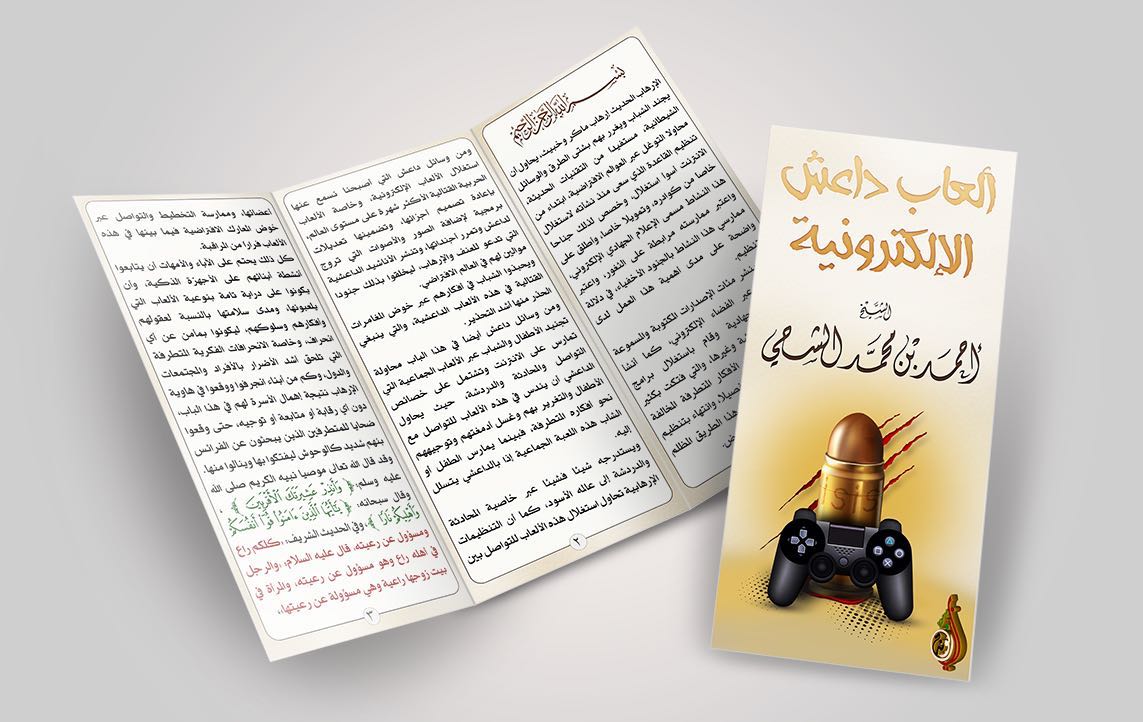 ألعاب داعش
الإلكترونية
الشيخ
أحمد بن محمد الشحي
isis
بسم الله الرحمن الرحيم
الإرهاب الحديث إرهاب ماكر وخبيث، يحاول أن
يجند الشباب ويغرر بهم بشتى الطرق والوسائل
الشيطانية، مستفيدا من التقنيات الحديثة،
محاولا التوغل عبر العوالم الافتراضية، ابتداء من
تنظيم القاعدة الذي سعى منذ نشأته لاستغلال
الانترنت أسوأ استغلال، وخصص لذلك جناحا
خاصا من كوادره، وتمويلا خاصا، وأطلق على
هذا النشاط مسمى الإعلام الجهادي الإلكتروني،
واعتبر ممارسته مرابطة على الثغور، واعتبر
ممارسي هذا النشاط بالجنود الأخفياء، في دلالة
واضحة على مدى أهمية هذا العمل لدى
تنظيم.
مئات الإصدارات المكتوبة والمسموعة
عبر الفضاء الإلكتروني، كما أنشأ
وقام باستغلال برامج
وغيرها، والتي فتكت بكثير
الأفكار المتطرفة المخالفة
وانتهاء بتنظيم
هذا الطريق المظلم
ومن وسائل داعش التي أصبحنا نسمع عنها
استغلال الألعاب الإلكترونية، وخاصة الألعاب
الحربية القتالية الأكثر شهرة على مستوى العالم،
بإعادة تصميم أجزائها، وتضمينها تعديلات
برمجية لإضافة الصور والأصوات التي تروج
لداعش وتمرر أجنداتها، وتنشر الأناشيد الداعشية
التي تدعو للعنف والإرهاب، ليخلقوا بذلك جنودا
موالين لهم في العالم الافتراضي،
ويجندوا الشباب في أفكارهم عبر خوض المغامرات
القتالية في هذه الألعاب الداعشية، والتي ينبغي
الحذر منها أشد التحذير.
ومن وسائل داعش أيضا في هذا الباب محاولة
تجنيد الأطفال والشباب عبر الألعاب الجماعية التي
تمارس على الانترنت وتشتمل على خصائص
التواصل والمحادثة والدردشة، حيث يحاول
الداعشي أن يندس في هذه الألعاب للتواصل مع
الأطفال والتغرير بهم وغسل أدمغتهم وتوجيههم
نحو أفكاره المتطرفة، فبينما يمارس الطفل أو
الشاب هذه اللعبة الجماعية إذا بالداعشي يتسلل
إليه،
ويستدرجه شيئا فشيئا عبر خاصية المحادثة
والدردشة إلى عالمه الأسود، كما أن التنظيمات
الإرهابية تحاول استغلال هذه الألعاب للتواصل بين
٢
أعضائها، وممارسة التخطيط والتواصل عبر
خوض المعارك الافتراضية فيما بينها في هذه
الألعاب فرارا من المراقبة.
كل ذلك يحتم على الآباء والأمهات أن يتابعوا
أنشطة أبنائهم على الأجهزة الذكية، وأن
يكونوا على دراية تامة بنوعية الألعاب التي
يلعبونها، ومدى سلامتها بالنسبة لعقولهم
وأفكارهم وسلوكهم، ليكونوا بمأمن عن أي
انحراف، وخاصة الانحرافات الفكرية المتطرفة
التي تلحق أشد الأضرار بالأفراد والمجتمعات
والدول، وكم من أبناء انجرفوا ووقعوا في هاوية
الإرهاب نتيجة إهمال الأسرة لهم في هذا الباب،
دون أي رقابة أو متابعة أو توجيه، حتى وقعوا
ضحايا للمتطرفين الذين يبحثون عن الفرائس
بنهم شديد كالوحوش ليفتكوا بها وينالوا منها.
وقد قال الله تعالى موصيا نبيه الكريم صلى الله
عليه وسلم: ﴿ وَأَنذِرْ عَشِيرَتَكَ الْأَقْرَبِينَ ﴾،
وقال سبحانه: ﴿ يَا أَيُّهَا الَّذِينَ آمَنُوا قُوا أَنفُسَكُمْ
وَأَهْلِيكُمْ نَارًا ﴾، وفي الحديث الشريف: «كلكم راع
ومسؤول عن رعيته، قال عليه السلام: «والرجل
في أهله راع وهو مسؤول عن رعيته، والمرأة في
بيت زوجها راعية وهي مسؤولة عن رعيتها»،
٣